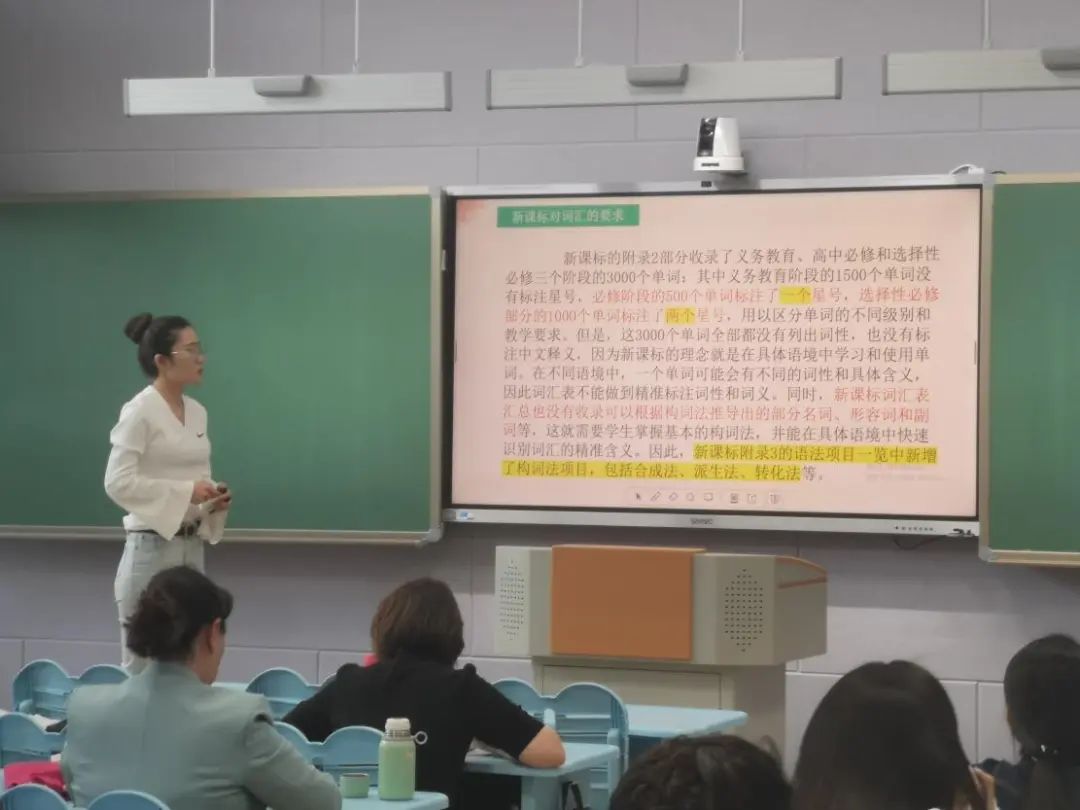 新课标对词汇的要求
新课标的附录2部分收录了义务教育、高中必修和选择性
必修三个阶段的3000个单词：其中义务教育阶段的1500个单词没
有标注星号，必修阶段的500个单词标注了一个星号，选择性必修
部分的1000个单词标注了两个星号，用以区分单词的不同级别和
教学要求。但是，这3000个单词全部都没有列出词性，也没有标
注中文释义，因为新课标的理念就是在具体语境中学习和使用单
词。在不同语境中，一个单词可能会有不同的词性和具体含义，
因此词汇表不能做到精准标注词性和词义。同时，新课标词汇表
汇总也没有收录可以根据构词法推导出的部分名词、形容词和副
词等，这就需要学生掌握基本的构词法，并能在具体语境中快速
识别词汇的精准含义。因此，新课标附录3的语法项目一览中新增
了构词法项目，包括合成法、派生法、转化法等。